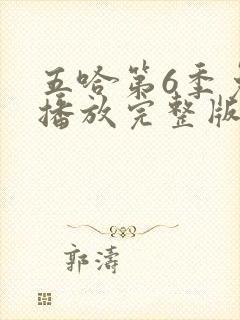 五哈第6季
播放完整版
郭濤